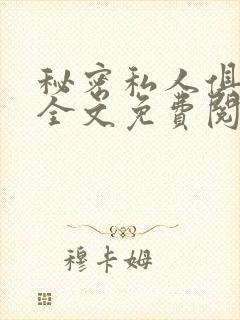 秘密私人俱
全文免费閱
穆卡姆